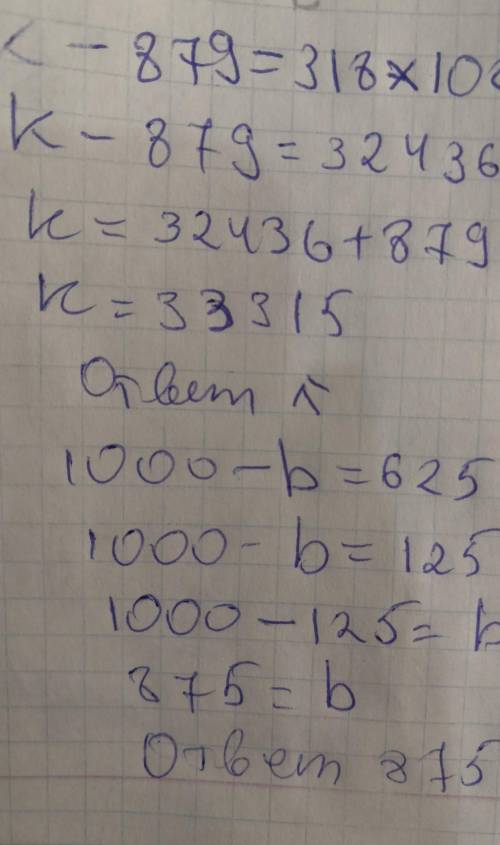 к - 879 = 318 × 10
к - 879 = 32436
к = 32436 + 879
к = 33315
Ответ
1000 - b = 625
1000 - b = 125
1000 - 125 = b
875 = b
Ответ 875